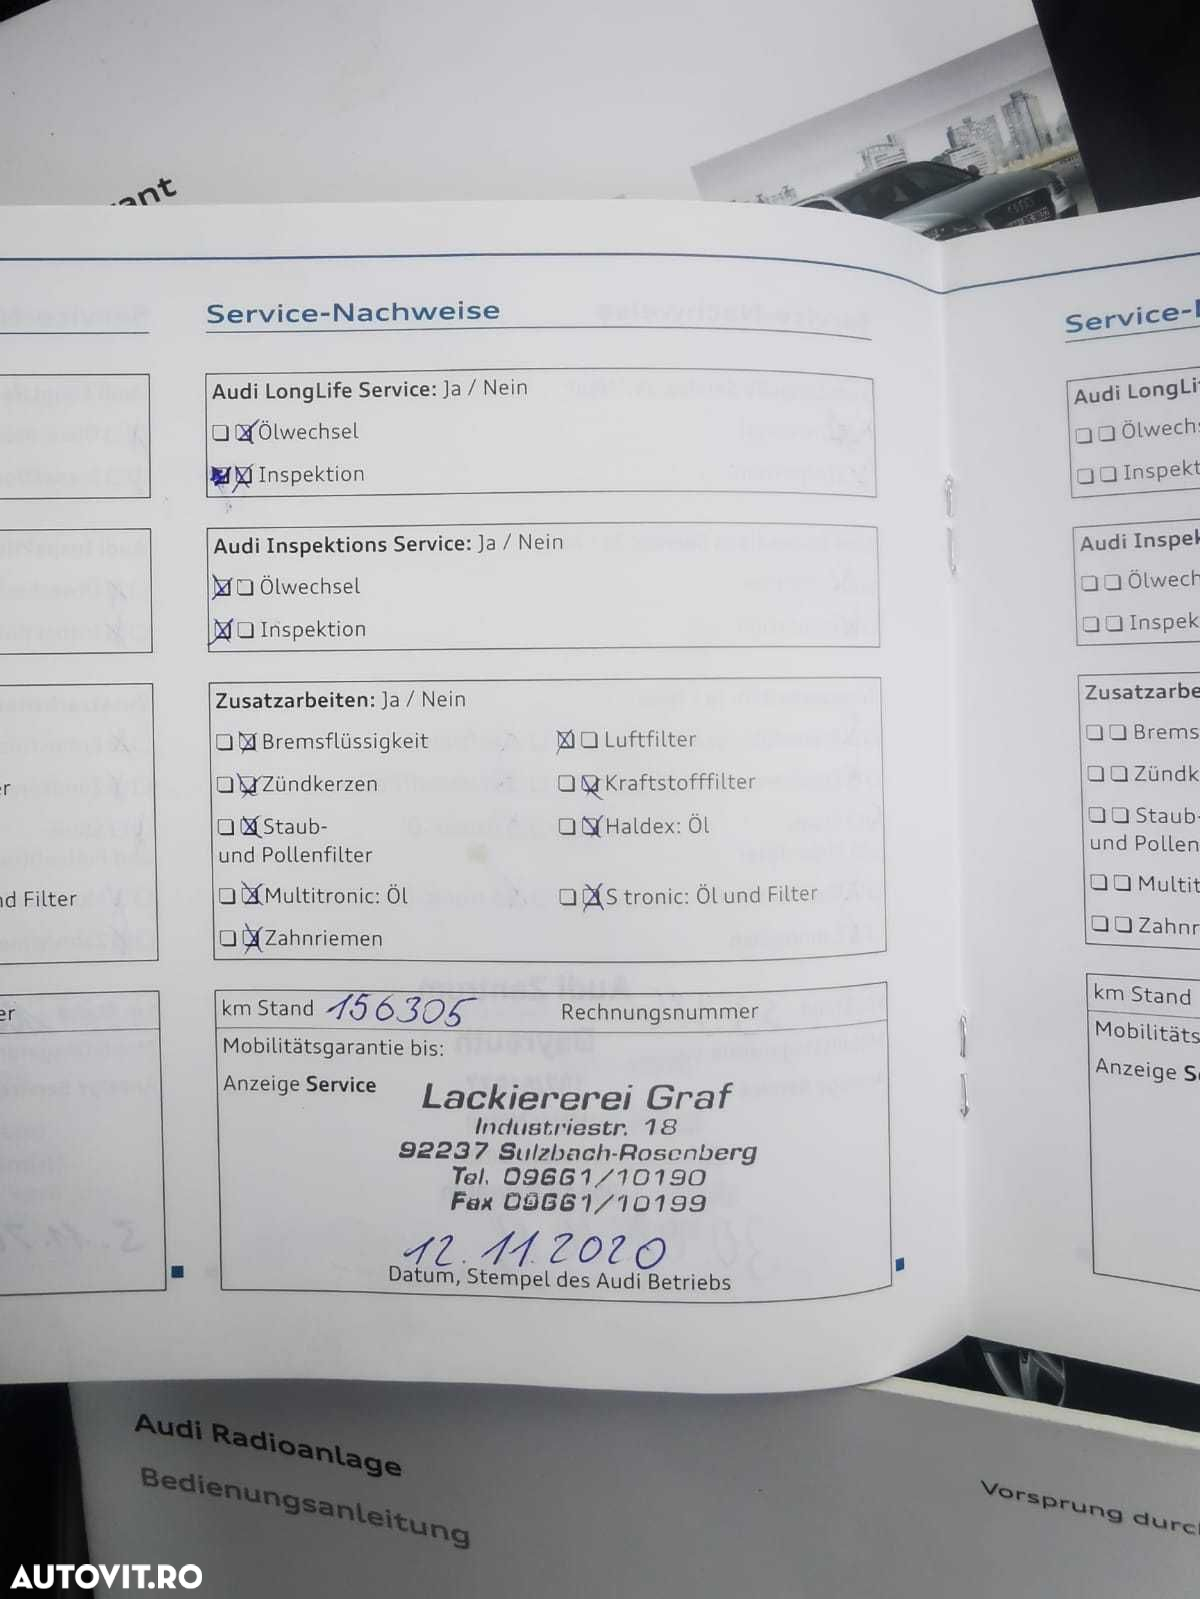 rant
Service-Nachweise
Audi LongLife Service: Ja / Nein
Ölwechsel
Inspektion
Audi Inspektions Service: Ja / Nein
Ölwechsel
Inspektion
Zusatzarbeiten: Ja / Nein
Bremsflüssigkeit
Luftfilter
Zündkerzen
Kraftstofffilter
Staub-
und Pollenfilter
Haldex: Öl
Multitronic: Öl
S tronic: Öl und Filter
Zahnriemen
km Stand 156305
Rechnungsnummer
Mobilitätsgarantie bis:
Anzeige Service
Lackiererei Graf
Industriestr. 18
92237 Sulzbach-Rosenberg
Tel. 09661/10190
Fax 09661/10199
12.11.2020
Datum, Stempel des Audi Betriebs
nd Filter
Service-N
Audi LongLif
Ölwechs
Inspekt
Audi Inspek
Ölwech
Inspek
Zusatzarbe
Brems
Zündk
Staub-
und Pollen
Multit
Zahnr
km Stand
Mobilitäts
Anzeige Se
Audi Radioanlage
Bedienungsanleitung
Vorsprung durch
AUTOVIT.RO